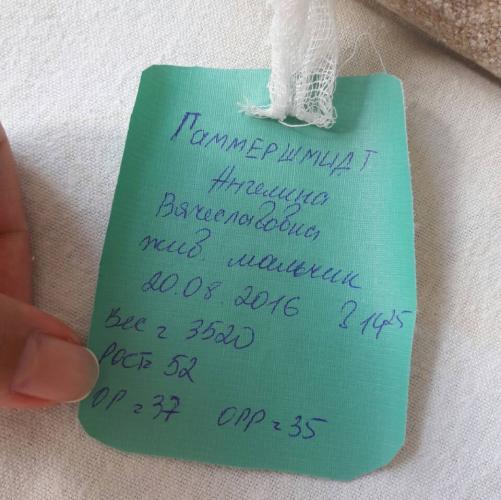 Гаммершмидт
Ангелина
Вячеславовна
жив. мальчик
20.08.2016 в 14²⁵
Вес = 3520
Рост = 52
ОГ = 37 ОГР = 35